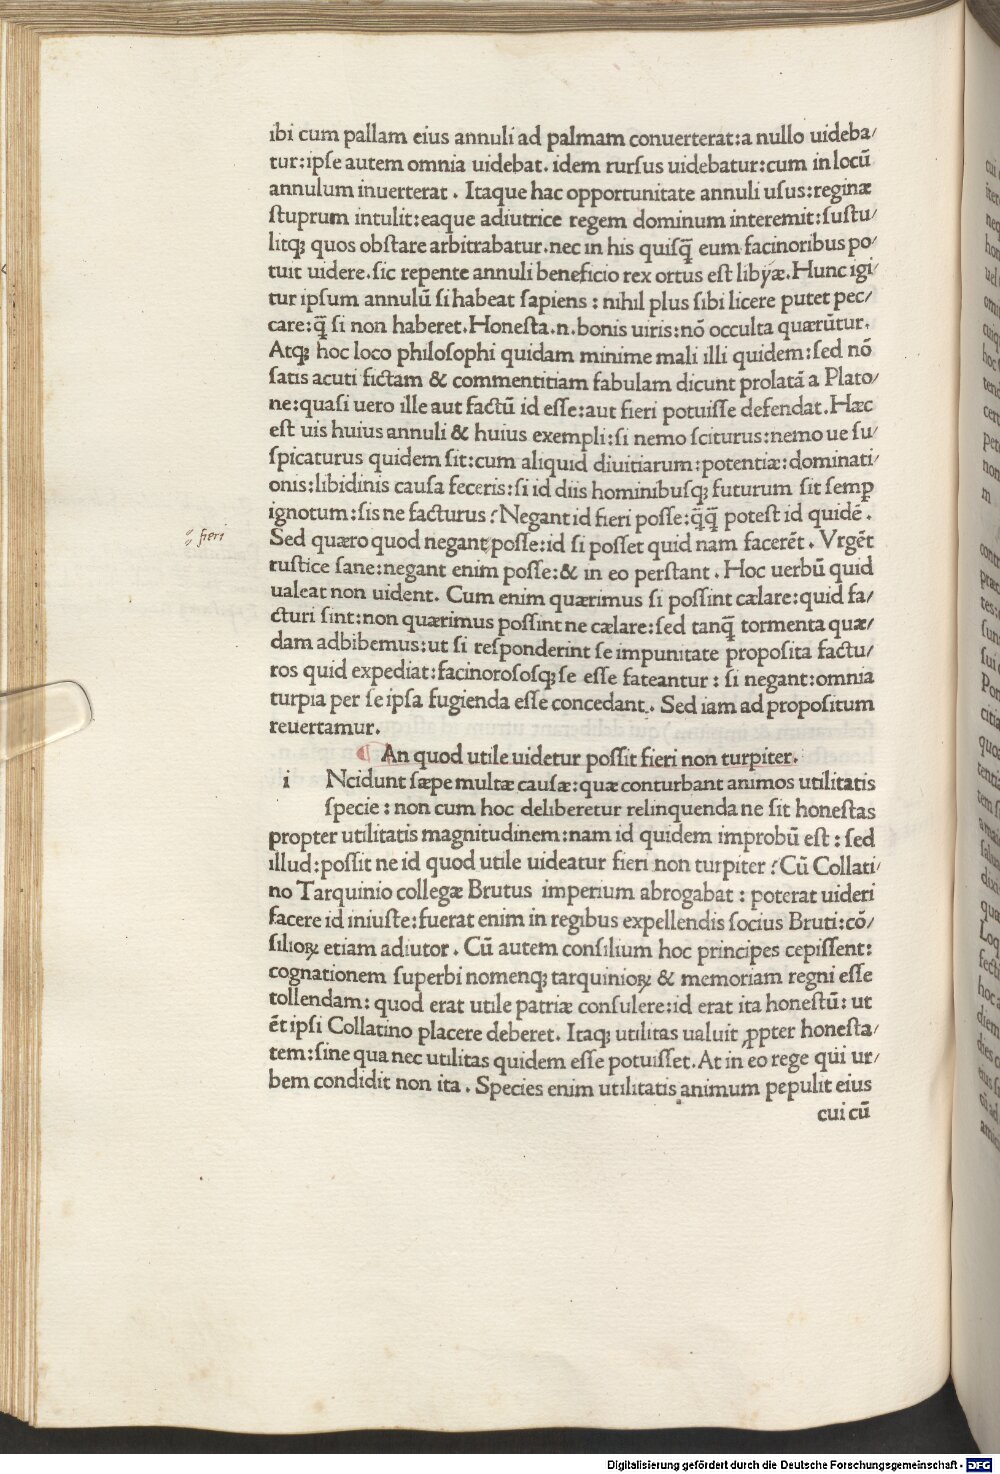 ibi cum pallam eius annuli ad palmam conuerterat:a nullo uideba/
tur:ipſe autem omnia uidebat. idem rurſus uidebatur:cum in locū
annulum inuerterat . Itaque hac opportunitate annuli uſus:reginæ
ſtuprum intulit:eaque adiutrice regem dominum interemit:ſuſtu/
litqꝫ quos obſtare arbitrabatur.nec in his quiſq̄ eum facinoribus po/
tuit uidere.ſic repente annuli beneficio rex ortus eſt libyæ.Hunc igi/
tur ipſum annulū ſi habeat ſapiens : nihil plus ſibi licere putet pec/
care:q̄ ſi non haberet.Honeſta.n.bonis uiris:nō occulta quærūtur.
Atqꝫ hoc loco philoſophi quidam minime mali illi quidem:ſed nō
ſatis acuti fictam & commentitiam fabulam dicunt prolatā a Plato/
ne:quaſi uero ille aut factū id eſſe:aut fieri potuiſſe defendat.Hæc
eſt uis huius annuli & huius exempli:ſi nemo ſciturus:nemo ue ſu/
ſpicaturus quidem ſit:cum aliquid diuitiarum:potentiæ:dominati/
onis:libidinis cauſa feceris:ſi id diis hominibuſqꝫ futurum ſit ſemꝑ
ignotum:ſis ne facturus? Negant id fieri poſſe:q̄q̄ poteſt id quidē .
fieri
Sed quæro quod negant poſſe:id ſi poſſet quid nam facerēt . Vrgēt
ruſtice ſane:negant enim poſſe:& in eo perſtant . Hoc uerbū quid
ualeat non uident. Cum enim quærimus ſi poſſint cælare:quid fa/
cturi ſint:non quærimus poſſint ne cælare:ſed tanq̄ tormenta quæ/
dam adbibemus:ut ſi reſponderint ſe impunitate propoſita factu/
ros quid expediat:facinoroſoſqꝫ ſe eſſe fateantur : ſi negant:omnia
turpia per ſe ipſa fugienda eſſe concedant . Sed iam ad propoſitum
reuertamur.
An quod utile uidetur poſſit fieri non turpiter.
i Ncidunt ſæpe multæ cauſæ:quæ conturbant animos utilitatis
ſpecie : non cum hoc deliberetur relinquenda ne ſit honeſtas
propter utilitatis magnitudinem:nam id quidem improbū eſt : ſed
illud:poſſit ne id quod utile uideatur fieri non turpiter? Cū Collati/
no Tarquinio collegæ Brutus imperium abrogabat : poterat uideri
facere id iniuſte:fuerat enim in regibus expellendis ſocius Bruti:cō/
ſilioꝝ etiam adiutor . Cū autem conſilium hoc principes cepiſſent:
cognationem ſuperbi nomenqꝫ tarquinioꝝ & memoriam regni eſſe
tollendam: quod erat utile patriæ conſulere:id erat ita honeſtū: ut
ēt ipſi Collatino placere deberet . Itaqꝫ utilitas ualuit ꝓpter honeſta/
tem:ſine qua nec utilitas quidem eſſe potuiſſet.At in eo rege qui ur/
bem condidit non ita . Species enim utilitatis animum pepulit eius
cui cū
Digitalisierung gefördert durch die Deutsche Forschungsgemeinschaft - DFG